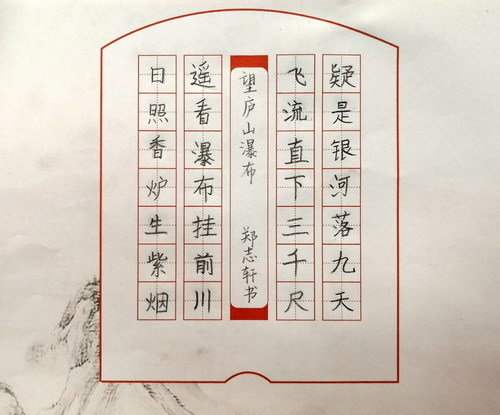 日照香炉生紫烟
遥看瀑布挂前川
望庐山瀑布 郑志轩书
飞流直下三千尺
疑是银河落九天